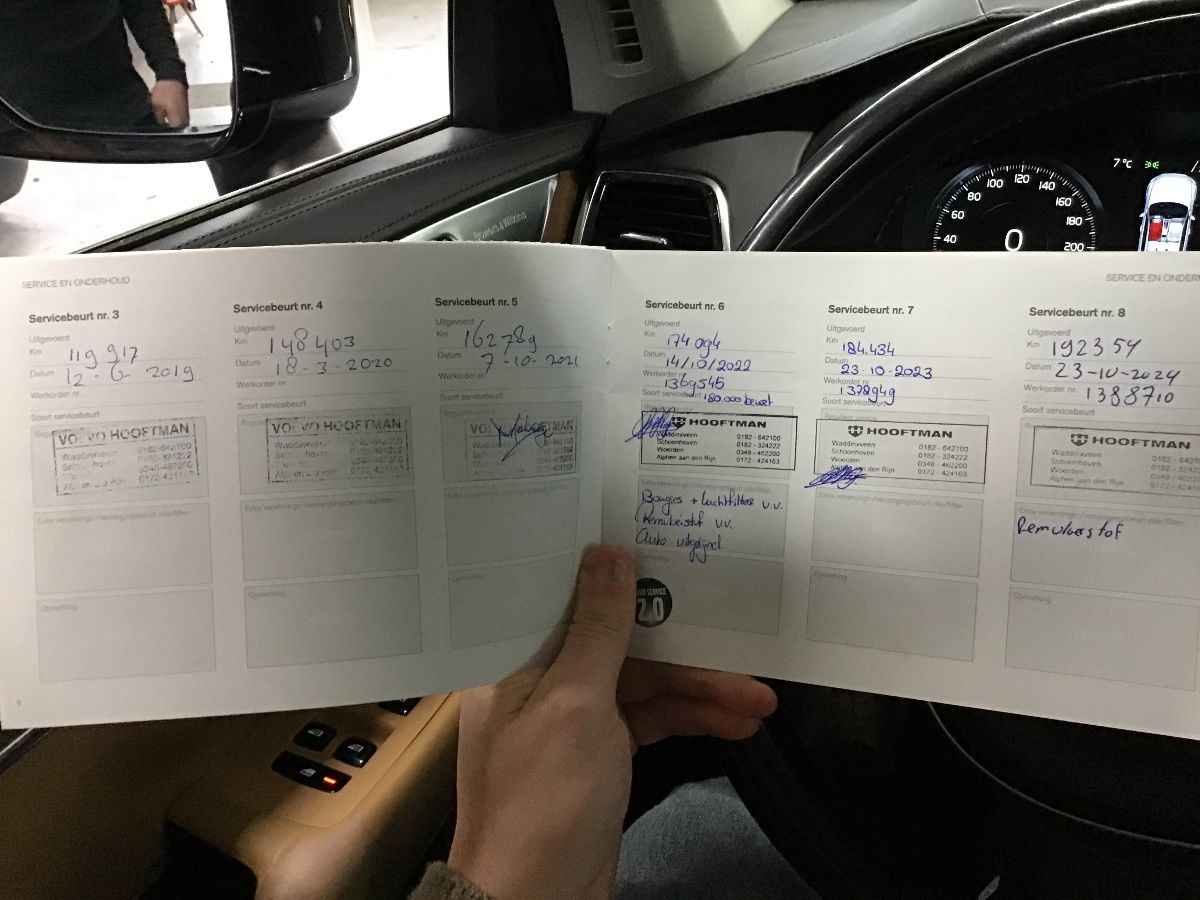 7°C
100 120 140
80 160
60 180
40 0 200
SERVICE EN ONDERHOUD
Servicebeurt nr. 3
Uitgevoerd
Km 119 917
Datum 12-6-2019
Werkorder nr.
Soort servicebeurt
VOLVO HOOFTMAN
Waddinxveen 0182-642100
Servicebeurt nr. 4
Uitgevoerd
Km 148 403
Datum 18-3-2020
Werkorder nr.
Soort servicebeurt
VOLVO HOOFTMAN
Waddinxveen 0182-642100
Servicebeurt nr. 5
Uitgevoerd
Km 162789
Datum 7-10-2021
Werkorder nr.
Soort servicebeurt
SERVICE EN ONDERH
Servicebeurt nr. 6
Uitgevoerd
Km 174094
Datum 14/10/2022
Werkorder nr. 1369545
Soort servicebeurt 180.000 beurt
HOOFTMAN
Waddinxveen 0182 - 642100
Schoonhoven 0182 - 324222
Woerden 0348 - 462200
Alphen aan den Rijn 0172 - 424163
Bougies + Luchtfilter v.v.
Remvloeistof v.v.
Auto uitgelijnd
2.0
Servicebeurt nr. 7
Uitgevoerd
Km 184.434
Datum 23.10.2023
Werkorder nr. 1378949
Soort servicebeurt
HOOFTMAN
Waddinxveen 0182 - 642100
Schoonhoven 0182 - 324222
Woerden 0348 - 462200
Alphen aan den Rijn 0172 - 424163
Opmerking
Servicebeurt nr. 8
Uitgevoerd
Km 192354
Datum 23-10-2024
Werkorder nr. 1388710
Soort servicebeurt
HOOFTMAN
Waddinxveen
Schoonhoven
Woerden
Alphen aan den Rijn
Remvloerstof
Opmerking